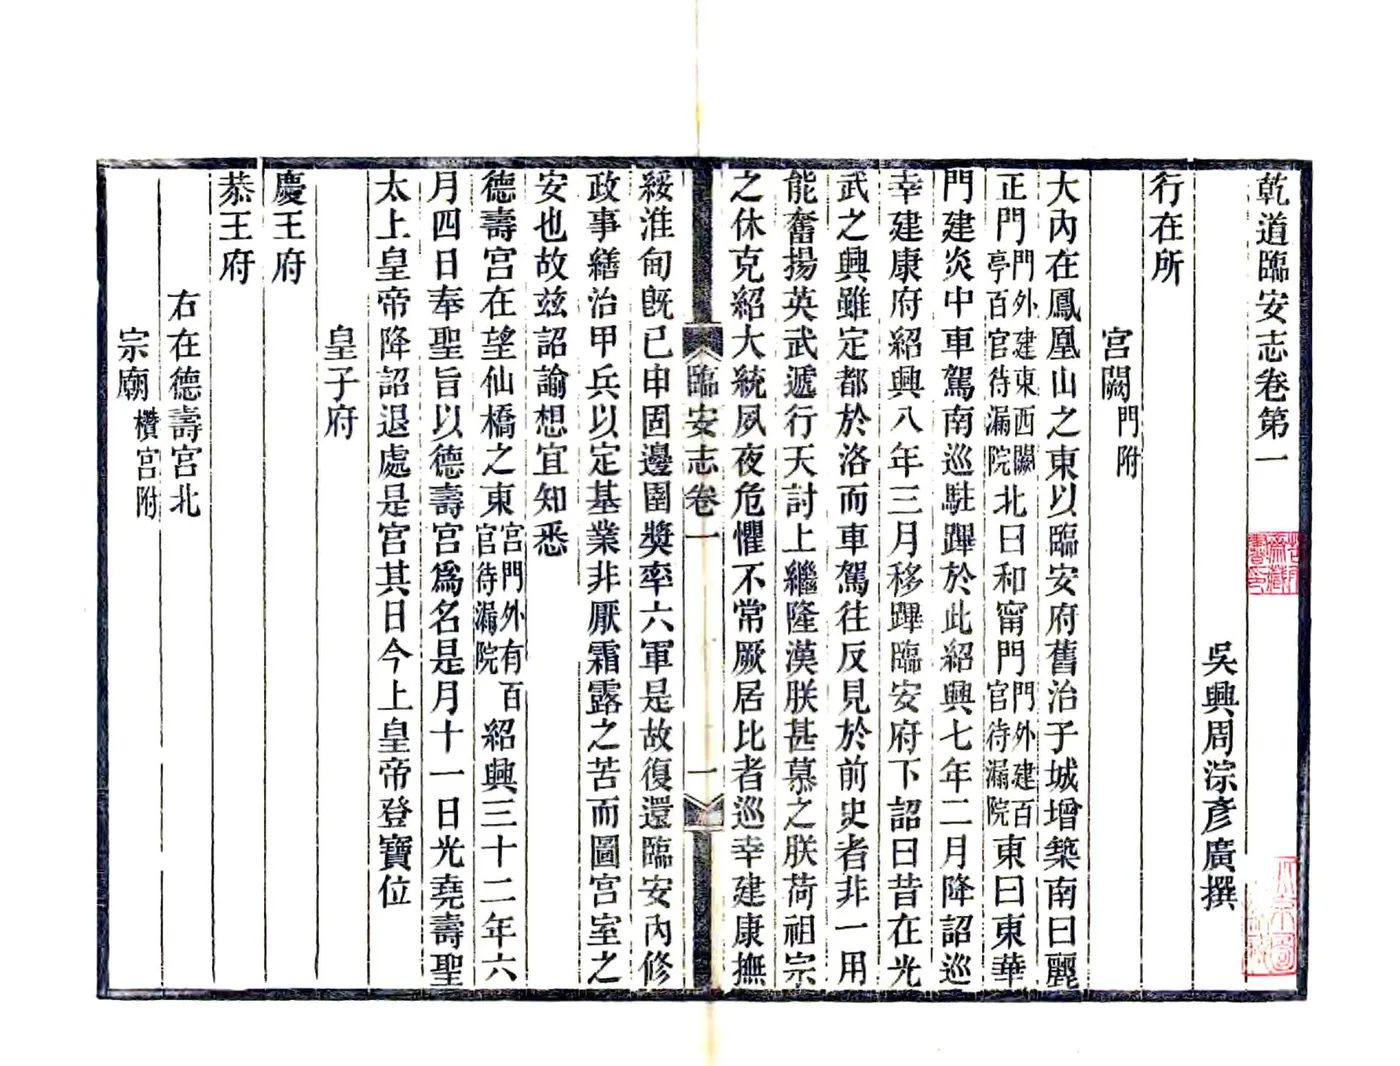 乾道臨安志卷第一
吳興周淙彥廣撰
行在所
宮闕門附
大內在鳳凰山之東以臨安府舊治子城增築南曰麗
正門門外建東西闕亭百官待漏院北曰和甯門門外建百官待漏院東曰東華
門建炎中車駕南巡駐蹕於此紹興七年二月降詔巡
幸建康府紹興八年三月移蹕臨安府下詔曰昔在光
武之興雖定都於洛而車駕往反見於前史者非一用
能奮揚英武遞行天討上繼隆漢朕甚慕之朕荷祖宗
之休克紹大統夙夜危懼不常厥居比者巡幸建康撫
臨安志卷一
一
綏淮甸旣已申固邊圉獎率六軍是故復還臨安內修
政事繕治甲兵以定基業非厭霜露之苦而圖宮室之
安也故玆詔諭想宜知悉
德壽宮在望仙橋之東宮門外有百官待漏院紹興三十二年六
月四日奉聖旨以德壽宮爲名是月十一日光堯壽聖
太上皇帝降詔退處是宮其日今上皇帝登寶位
皇子府
慶王府
恭王府
右在德壽宮北
宗廟欑宮附